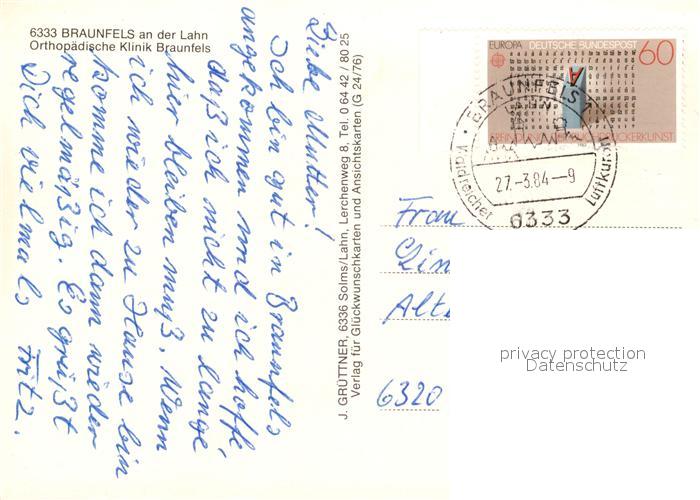 6333 BRAUNFELS an der Lahn
Orthopädische Klinik Braunfels
Liebe Mutter!
Ich bin gut in Braunfels
angekommen und ich hoffe,
daß ich nicht zu lange
hier bleiben muß. Wenn
ich wieder zu Hause bin
komme ich dann wieder
regelmäßig. Es grüßt
Dich vielmals Fritz.
J. GRÜTTNER, 6336 Solms/Lahn, Lerchenweg 8, Tel. 0 64 42 / 80 25
Verlag für Glückwunschkarten und Ansichtskarten (G 24/76)
EUROPA DEUTSCHE BUNDESPOST 60
BRAUNFELS
27.-3.84-9
6333
Luftkur
Frau
6320
privacy protection
Datenschutz